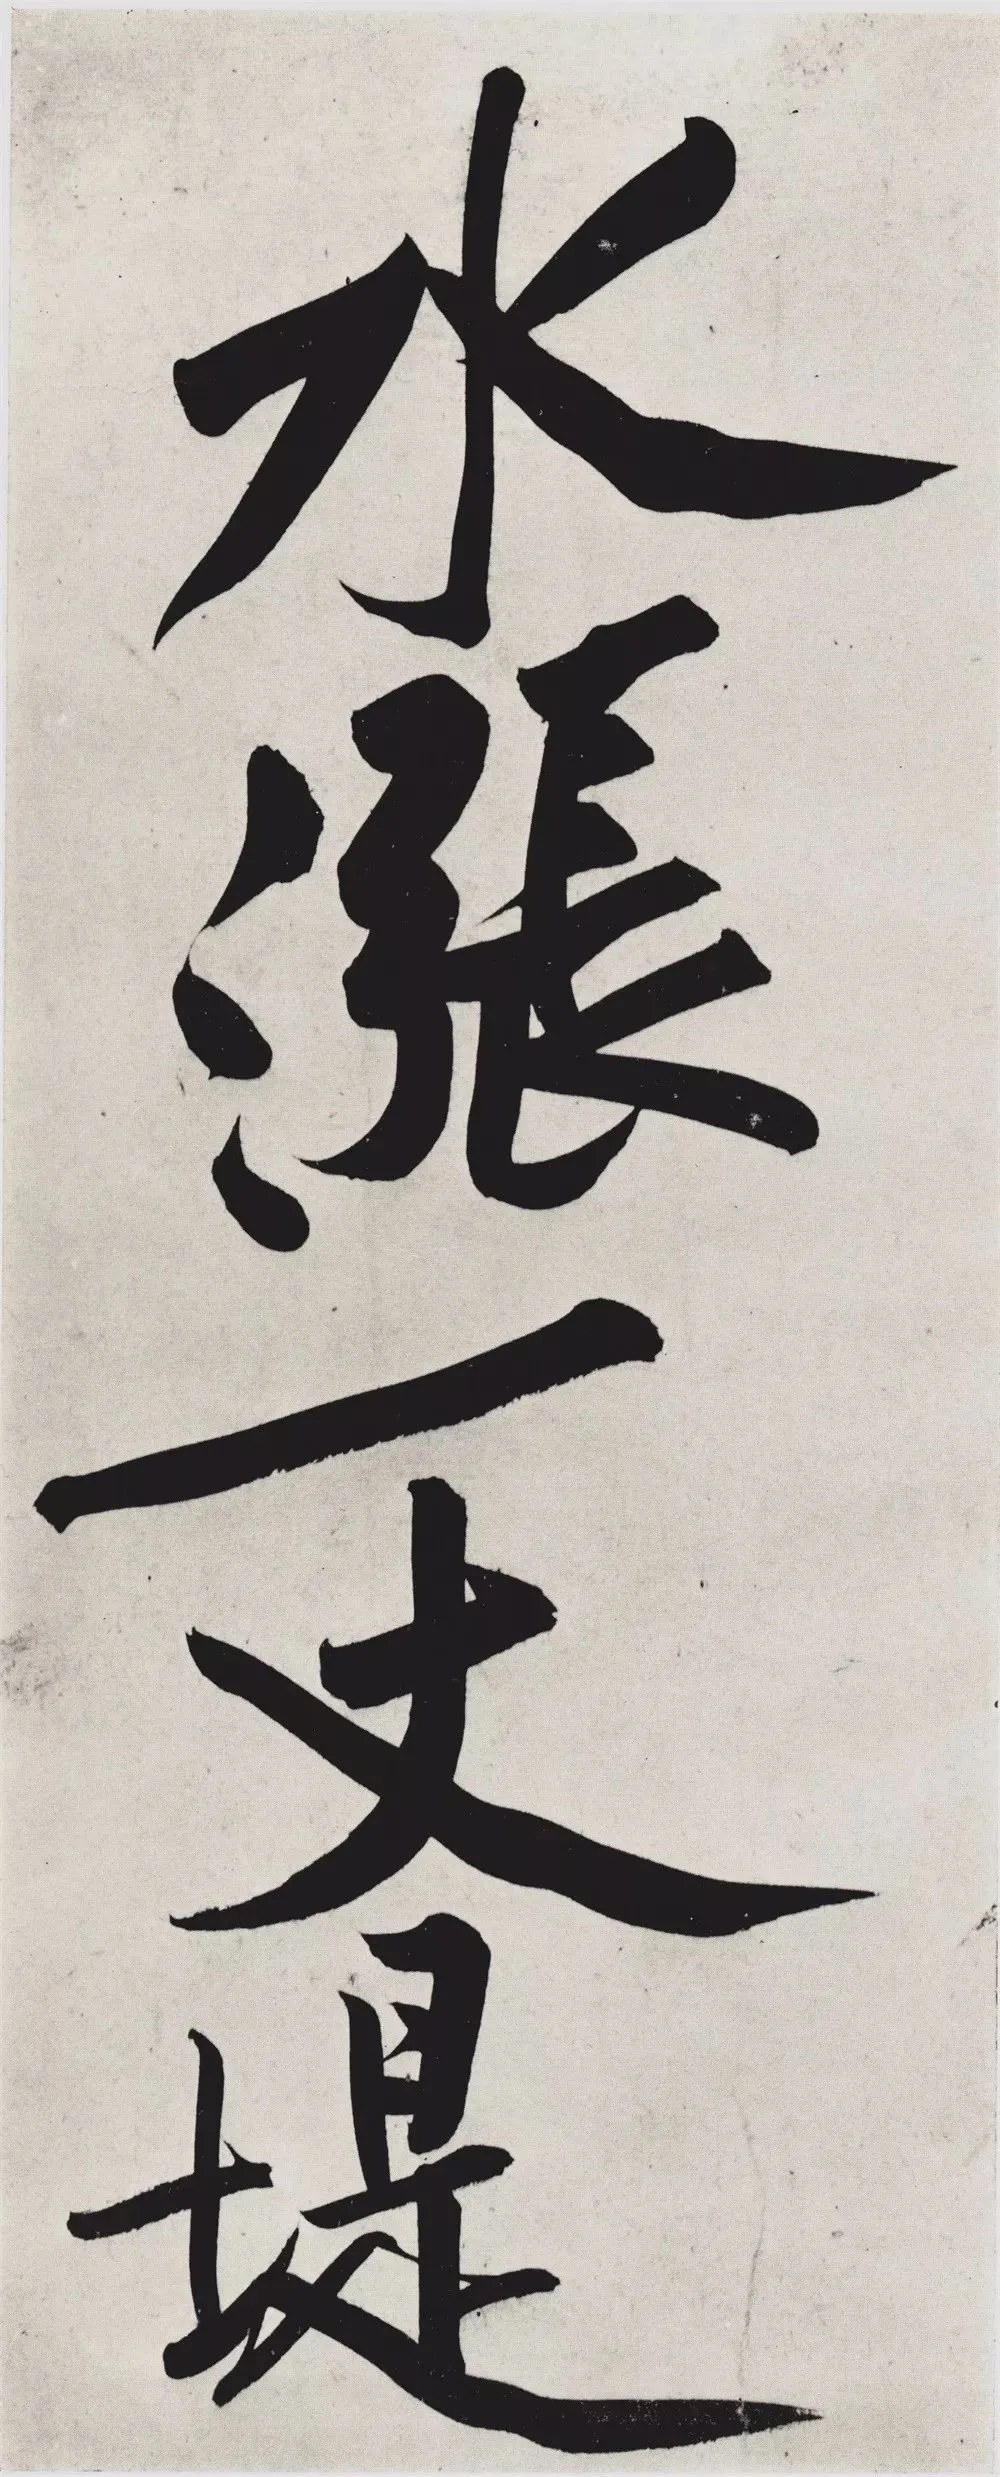 水漲一丈堤